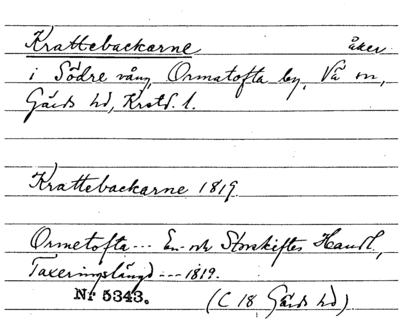 Krattebackarne åker
i Södre vång, Ormatofta by, Vä sn,
Gärds hd, Krstd. l.
Krattebackarne 1819.
Ormetofta --- En- och Storskiftes Handl.,
Taxeringslängd --- 1819.
Nr 5343. (C 18 Gärds hd)